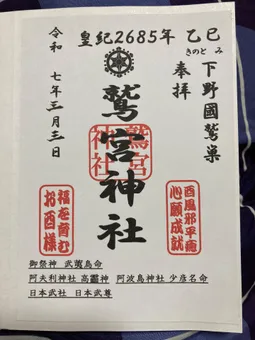 皇紀2685年 乙巳
きのとみ
下野國鷲巣
奉拝
鷲宮神社
鷲宮神社
令和 七年三月三日
酉風邪平癒
心願成就
福を育む
お酉様
御祭神 武夷鳥命
阿夫利神社 高龗神 阿波島神社 少彦名命
日本武社 日本武尊